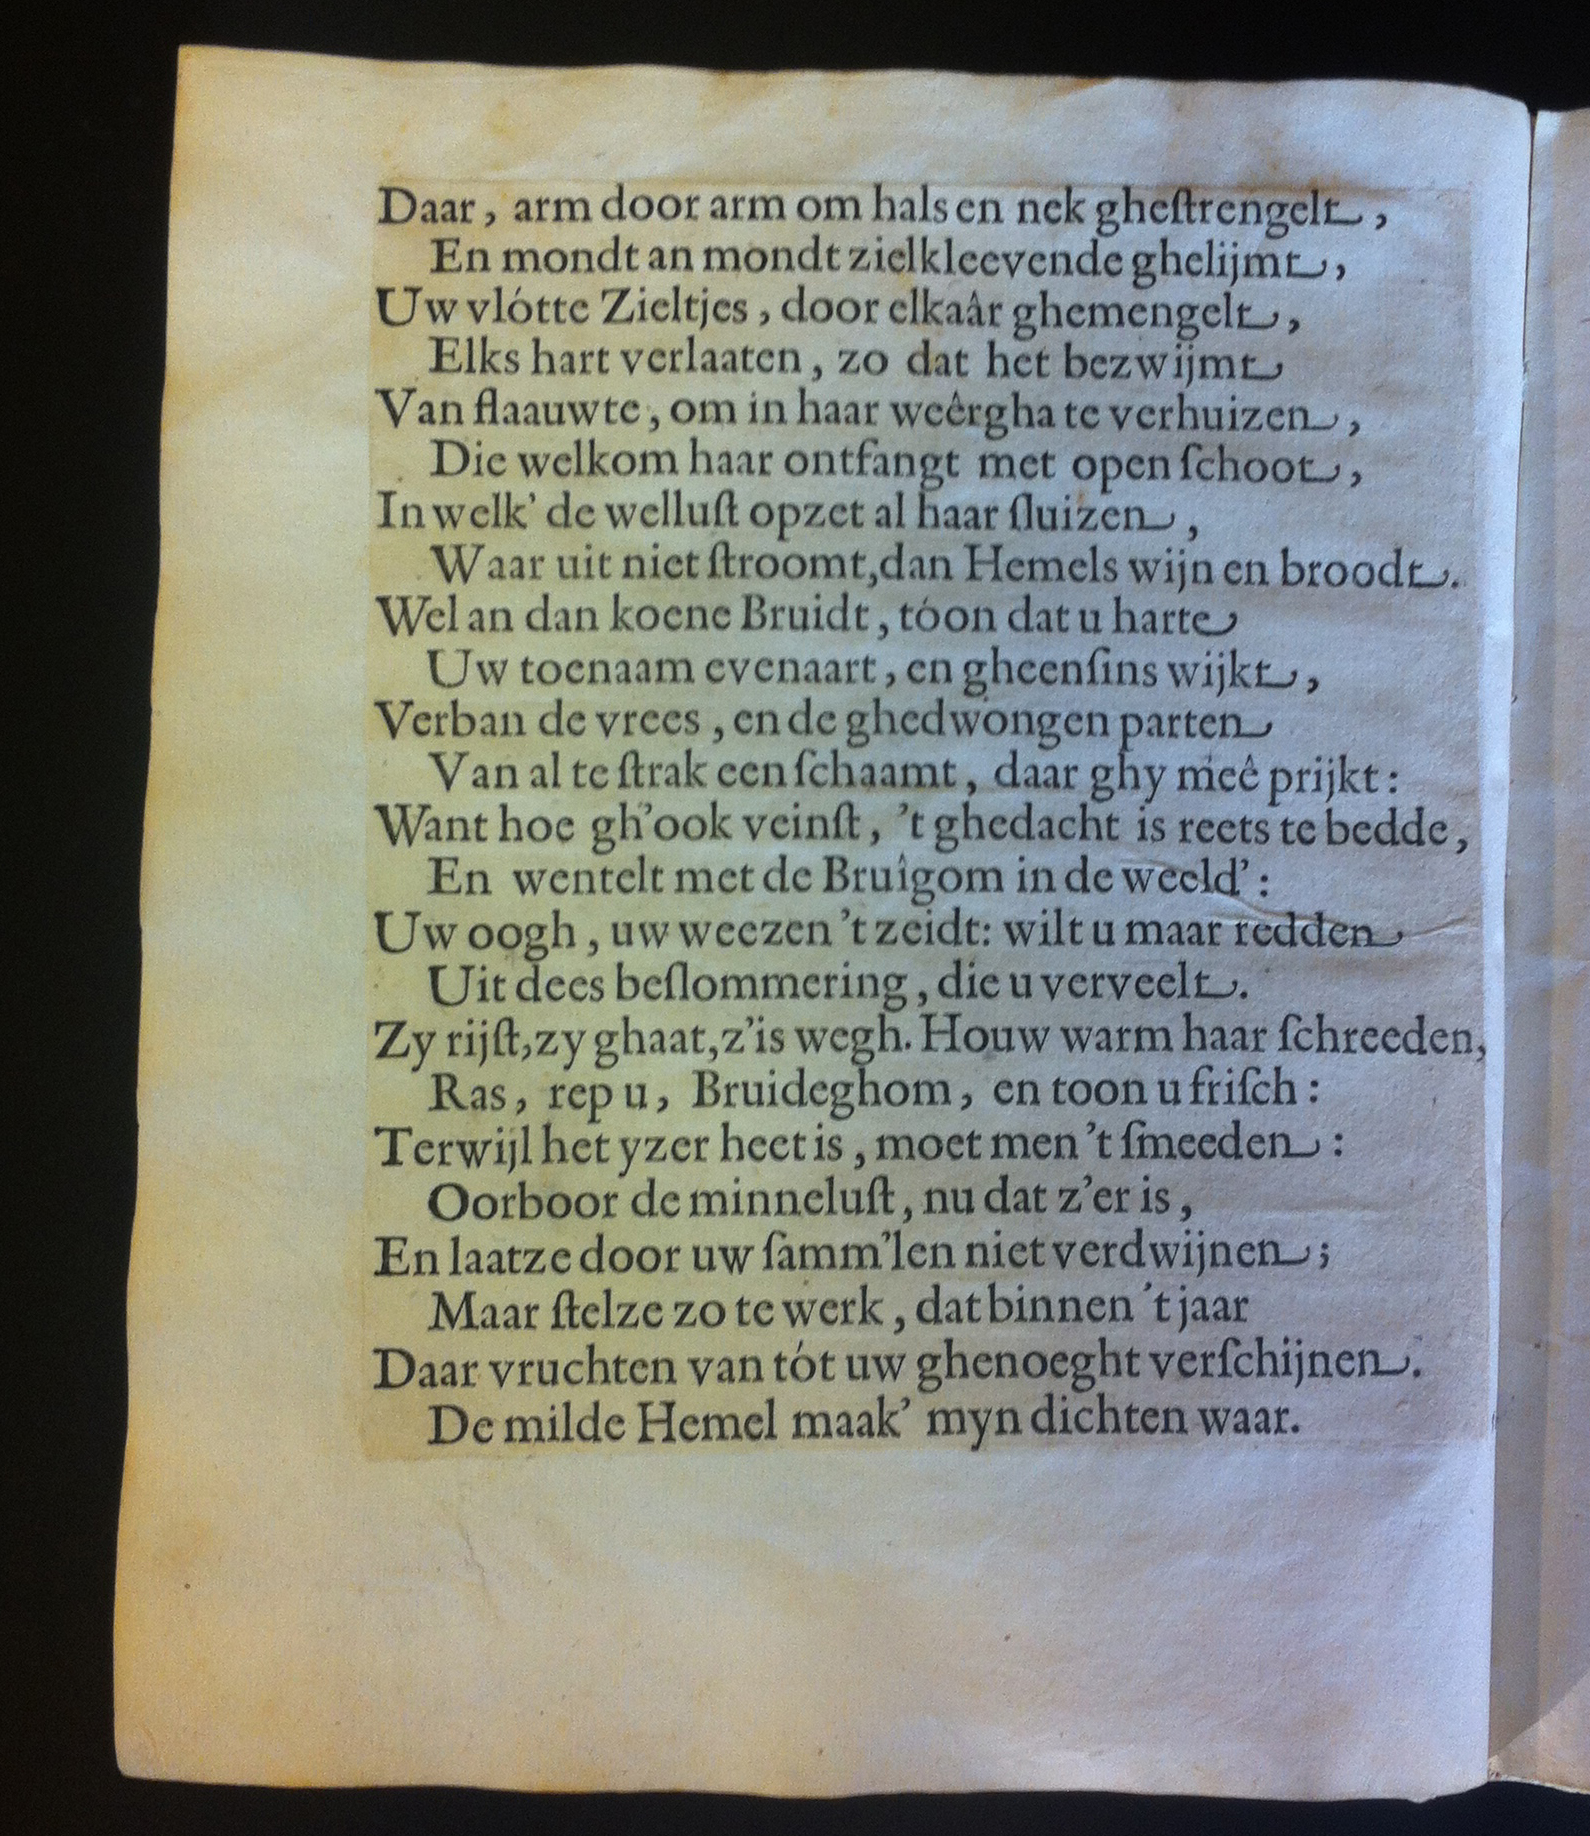 Daar, arm door arm om hals en nek gheſtrengelt,
En mondt an mondt zielkleevende ghelijmt,
Uw vlótte Zieltjes, door elkaâr ghemengelt,
Elks hart verlaaten, zo dat het bezwijmt
Van flaauwte, om in haar weêrgha te verhuizen,
Die welkom haar ontfangt met open ſchoot,
In welk' de welluſt opzet al haar ſluizen,
Waar uit niet ſtroomt, dan Hemels wijn en broodt.
Wel an dan koene Bruidt, tóon dat u harte
Uw toenaam evenaart, en gheenſins wijkt,
Verban de vrees, en de ghedwongen parten
Van al te ſtrak een ſchaamt, daar ghy meê prijkt:
Want hoe gh'ook veinſt, 't ghedacht is reets te bedde,
En wentelt met de Bruîgom in de weeld':
Uw oogh, uw weezen 't zeidt: wilt u maar redden
Uit dees beſlommering, die u verveelt.
Zy rijſt, zy ghaat, z'is wegh. Houw warm haar ſchreeden,
Ras, rep u, Bruideghom, en toon u friſch:
Terwijl het yzer heet is, moet men 't ſmeeden:
Oorboor de minneluſt, nu dat z'er is,
En laatze door uw ſamm'len niet verdwijnen;
Maar ſtelze zo te werk, dat binnen 't jaar
Daar vruchten van tót uw ghenoeght verſchijnen.
De milde Hemel maak' myn dichten waar.